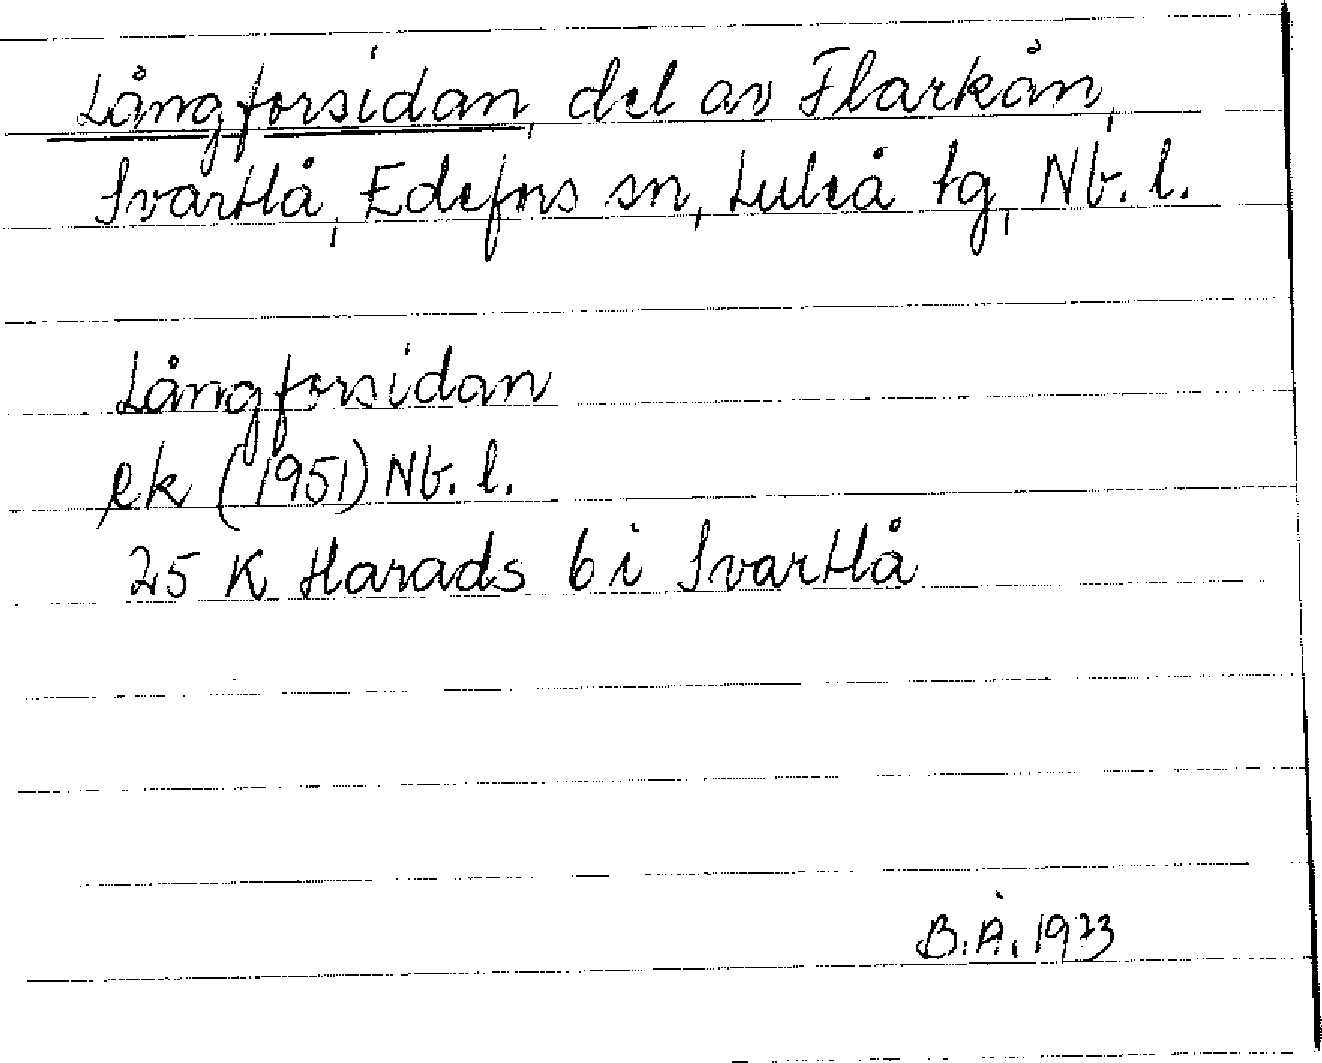 Långforsidan, del av Flarkån,
Svartlå, Edefors sn, Luleå tg, Nb. l.
Långforsidan
ek (1951) Nb. l.
25 K Harads 6 i Svartlå
B. Å. 1973